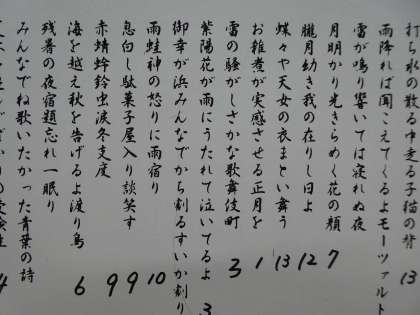 打ち水の散る中走る小猫の脊 13
雨降れば聞こえてくるよモーツァルト
雷が鳴り響いては寝れぬ夜
月明かり光きらめく花の顔 7
朧月幼き我の在りし日よ 12
蝶々や天女の衣まとい舞う 13
お雑煮が実感させる正月を 1
雪の騒がしさかな歌舞伎町 3
紫陽花が雨にうたれて泣いてるよ 3
御幸が浜みんなでかち割るすいか割り
雨蛙神の怒りに雨宿り 10
息白し駄菓子屋入り談笑す 9
赤蜻蛉鈴虫波冬支度 9
海を越え秋を告げるよ渡り鳥 6
残暑の夜宿題忘れ一眠り
みんなでね歌いたかった青葉の詩
4